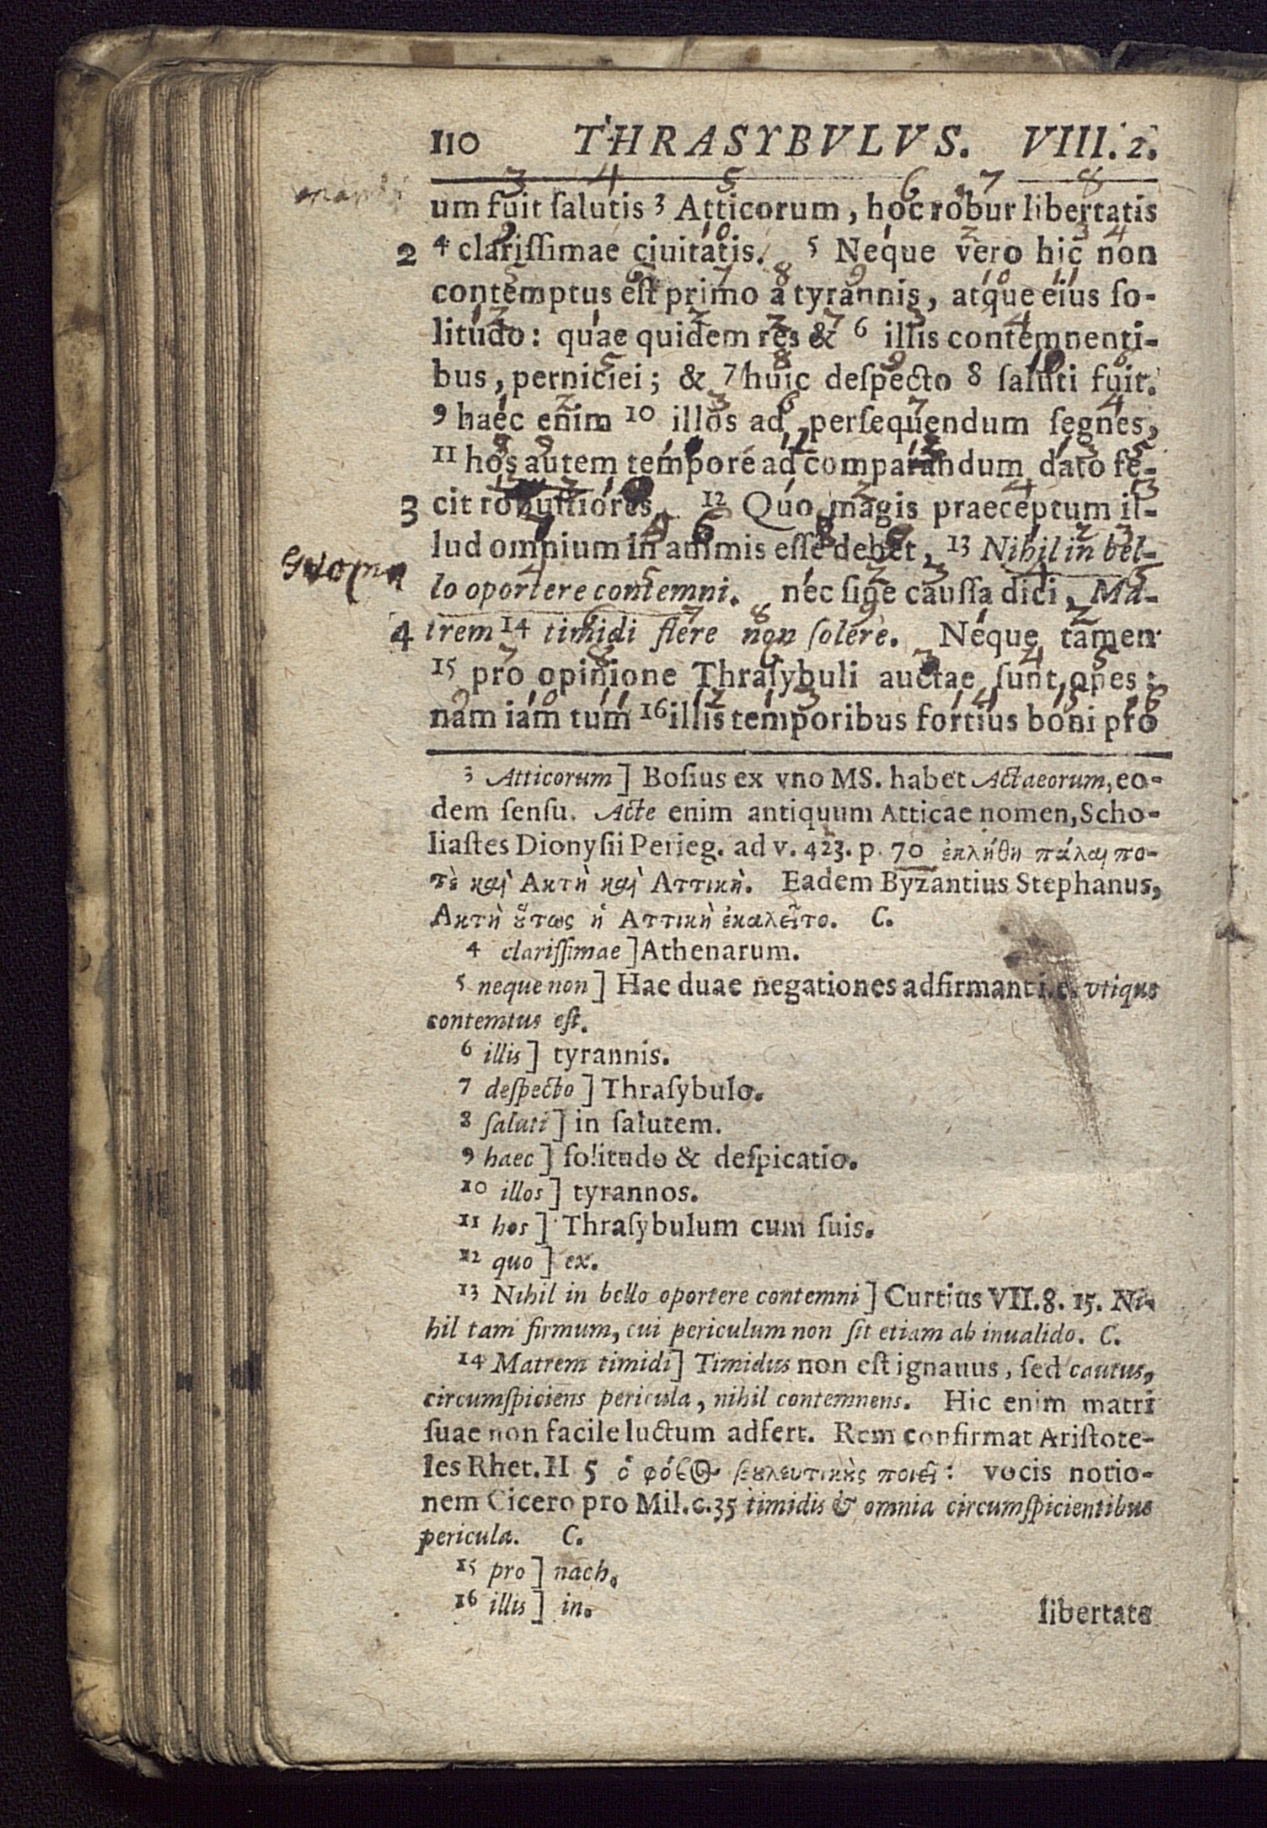 110 THRASYBVLVS. VIII. 2.
um fuit ſalutis 3 Atticorum, hoc robur libertatis
2 4 clariſſimae ciuitatis. 5 Neque vero hic non
contemptus eſt primo a tyrannis, atque eius ſo-
litudo: quae quidem res & 6 illis contemnenti-
bus, perniciei; & 7 huic deſpecto 8 ſaluti fuit.
9 haec enim 10 illos ad perſequendum ſegnes,
11 hos autem tempore ad comparandum dato fe-
3 cit robuſtiores. 12 Quo magis praeceptum il-
lud omnium in animis eſſe debet, 13 Nihil in bel-
lo oportere contemni. nec ſine cauſſa dici, Ma-
4 trem 14 timidi flere non ſolere. Neque tamen
15 pro opinione Thraſybuli auctae ſunt opes:
nam iam tum 16 illis temporibus fortius boni pro
3 Atticorum] Boſius ex vno MS. habet Actaeorum, eo-
dem ſenſu. Acte enim antiquum Atticae nomen, Scho-
liaſtes Dionyſii Perieg. ad v. 423. p. 70 ἐκλήθη πάλαι πο-
τὲ καὶ Ακτὴ καὶ Αττική. Eadem Byzantius Stephanus,
Ακτὴ ὅτως ἡ Αττικὴ ἐκαλεῖτο. C.
4 clariſſimae] Athenarum.
5 neque non] Hae duae negationes adfirmant i. e. vtique
contemtus eſt.
6 illis] tyrannis.
7 deſpecto] Thraſybulo.
8 ſaluti] in ſalutem.
9 haec] ſolitudo & deſpicatio.
10 illos] tyrannos.
11 hos] Thraſybulum cum ſuis.
12 quo] ex.
13 Nihil in bello oportere contemni] Curtius VII. 8. 15. Ni-
hil tam firmum, cui periculum non ſit etiam ab inualido. C.
14 Matrem timidi] Timidus non eſt ignauus, ſed cautus,
circumſpiciens pericula, nihil contemnens. Hic enim matri
ſuae non facile luctum adfert. Rem confirmat Ariſtote-
les Rhet. II 5 ὁ φόβος βουλευτικὸς ποιεῖ: vocis notio-
nem Cicero pro Mil. c. 35 timidis & omnia circumſpicientibus
pericula. C.
15 pro] nach.
16 illis] in.
libertate